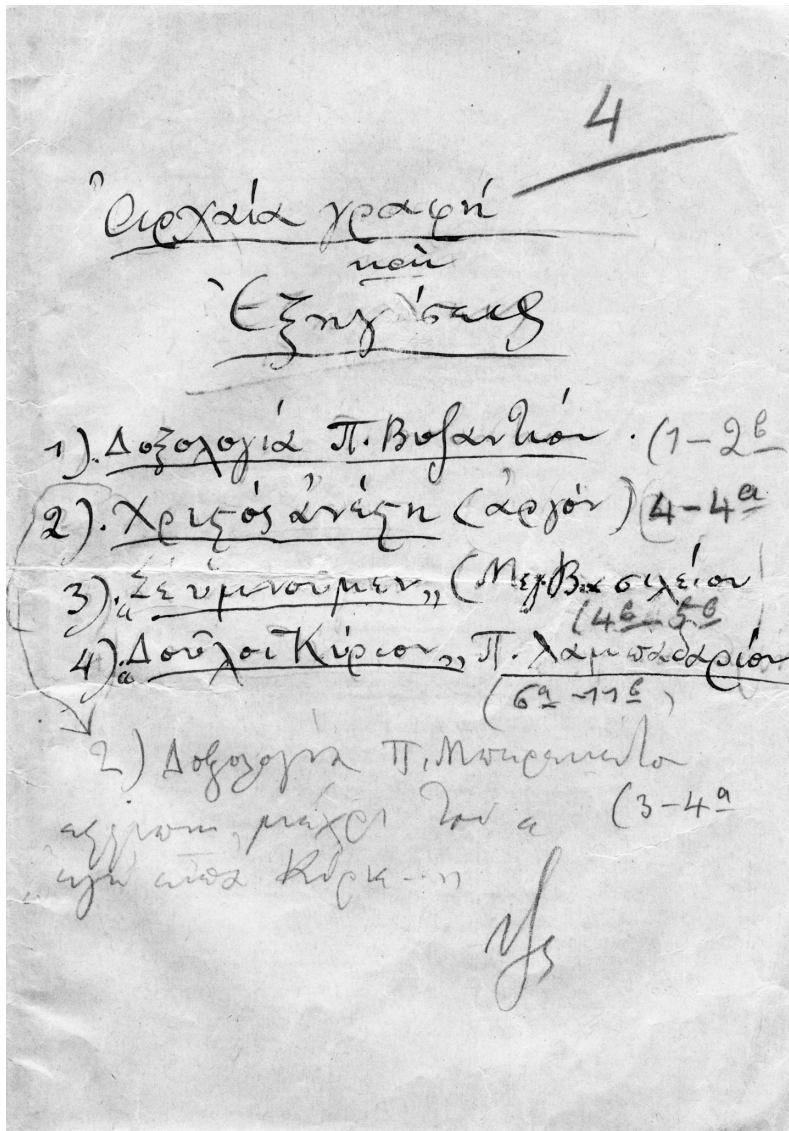 4
Ἀρχαία γραφή
καὶ
Ἐξηγήσεις
1). Δοξολογία Π. Βυζαντίου. (1-2β
2). Χριστός ἀνέστη (ἀργόν) (4-4α
3). „Σέ ὑμνοῦμεν„ (Μεγ. Βασιλείου
(4β-5β
4). „Δοῦλοι Κύριον„ Π. Λαμπαδαρίου
(6α-11β)
2) Δοξολογία Π. Μπερεκέτου
μέχρι τοῦ (3-4α
ἐγώ εἶπα Κύριε